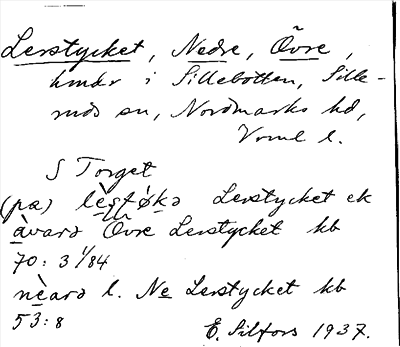 Lerstycket, Nedre, Övre,
hmdr i Sillebotten, Sille-
ruds sn, Nordmarks hd,
Värml l.
S Torget
(pæ) lèṣtỳkə Lerstycket ek
àvarə Övre Lerstycket kb
70: 3 1/84
nèarə l. Ne Lerstycket kb
53:8
E. Silfors 1937.